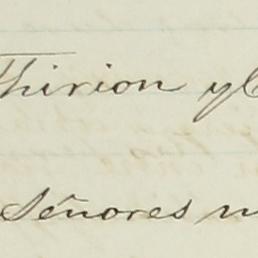 Thirion y
Señores